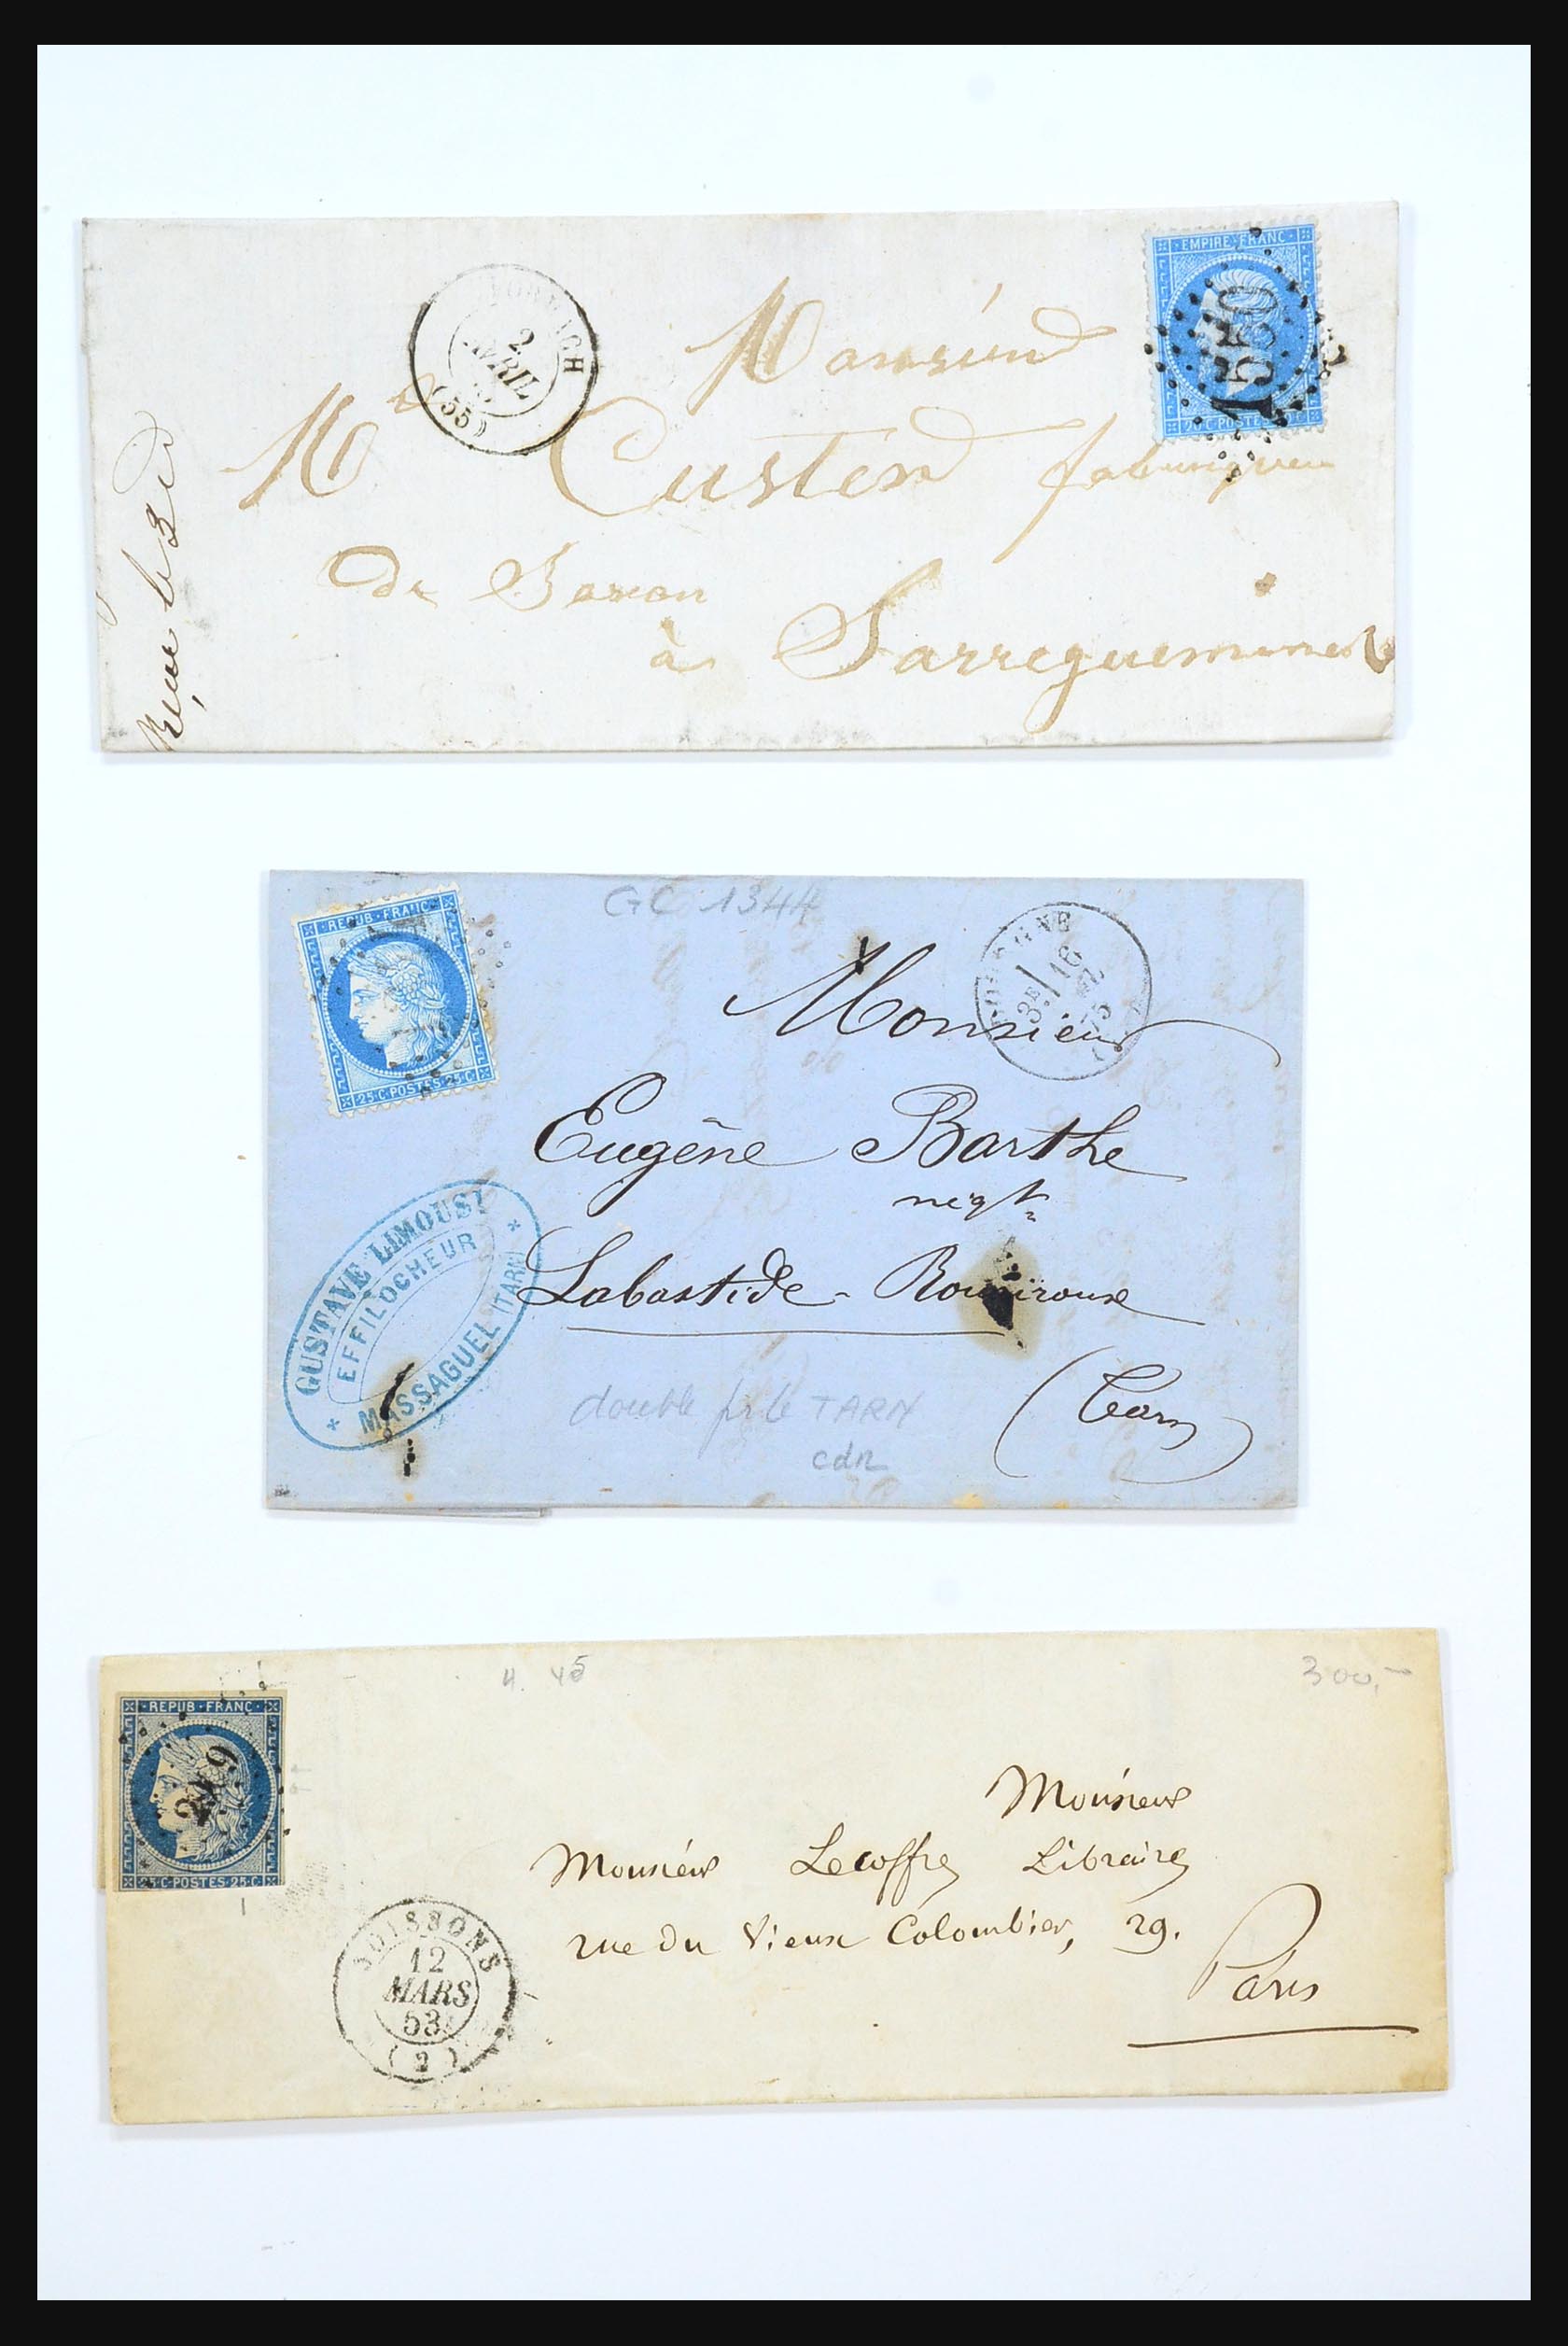 EMPIRE FRANC
1550
20 C POSTES 20 C
2
AVRIL
(55)
Monsieur
Mr Custer fabriquen
de Savon
à Sarreguemines
Reçue le 3 d
REPUB FRANC
25 C POSTES 25 C
GC 1344
DOURGNE
3E 16
75
Monsieur
Eugène Barthe
negt
Labastide-Rouairoux
(Tarn)
GUSTAVE LIMOUSI
EFFILOCHEUR
* MASSAGUEL (TARN) *
double pr le TARN
cdr
4. 45
300,-
REPUB FRANC
25 C POSTES 25 C
SOISSONS
12
MARS
53
(2)
Monsieur
Monsieur Lecoffre Libraire
rue du Vieux Colombier, 29.
Paris